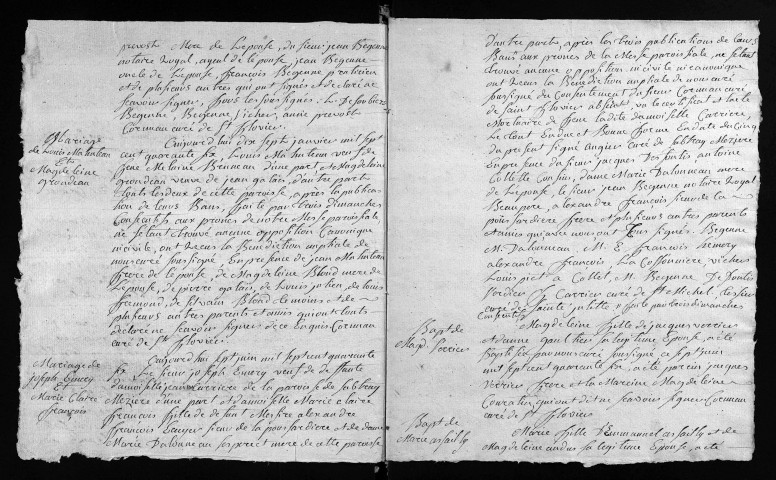 prevost Mere de Lepouse, du sieur jean Begenne
notaire Royal, agent de lepouse, jean Begenne
oncle de Lepouse, françois Begenne praticien
et de plusieurs autres qui ont signés et declaré ne
sçavoir signer, sous les soussignés
Begenne, Begenne, anne prevost
Cormeau curé de St flovier
Mariage
de Louis Marteau
Et
Magdeleine
grondeau
Cejourdhui dix sept janvier mil sept
cent quarante six, Louis veuf de
jeane Meloine Brineau d'une part et Magdeleine
grondeau veuve de jean galais, d'autre part
touts les deux de cette paroisse, apres la publication
de leurs Bans, faite par trois dimanches
Consecutifs, aux prones de notre Messe paroissiale,
ne setant trouvé aucune opposition Canonique
ni civile, ont Recus la Benediction nuptiale de
nous curé soussigné En presence de jean
frere de lepoux, de Magdeleine Blond mere de
Lepouse, de pierre galais, de Louis julien, de louis
fremond, de silvain Blond temoins et de
plusieurs autres parents et amis qui ont touts
declaré ne sçavoir signer de ce Enquis Cormeau
curé de St flovier
Mariage de
joseph Emery
Et
Marie Claire
françois
Cejourdhui sept juin mil sept cent quarante
six Le sieur joseph Emery veuf de defunte
damoiselle jeane Carriere de la paroisse de
Mezieres d'une part et damoiselle Marie claire
françois fille de defunt Messire alexandre
françois Ecuyer sieur de la poissardiere et de dame
Marie Dalouneau ses pere et mere de cette paroisse
d'autre part, apres les trois publications de leurs
Bans aux prones de la Messe paroissiale, ne setant
trouvé aucune opposition ni civile ni canonique
ont Recus la Benediction nuptiale de nous curé
soussigné du Consentement du sieur Cormeau curé
de saint flovier absent, vu le certificat et
Mortuaire de feue ladite damoiselle Carriere,
Le tout En due et Bonne forme En date du cinq
du present signé curé de Mezieres
En presence du sieur jacques antoine
Collet Cousin, dame Marie Dalouneau mere
de Lepouse, le sieur jean Begenne notaire Royal
Beaupere, alexandre françois sieur de la
poissardiere frere et plusieurs autres parents
et amis qui avec nous ont tous signés. Begenne
M. Dalouneau, M. C. françois hemery
alexandre françois La
Louis Collet, M. Begenne
Carrier curé de St Michel,
curé de sainte julitte faite par trois dimanches
consecutifs
Bapt de
Magd. Verrier
Magdeleine fille de jacques verrier
et danne gaultier sa legitime Epouse, a eté
Baptisée par nous curé soussigné ce sept juin
mil sept cent quarante six, a eté parein jacques
verrier frere et la Mareine Magdeleine
qui ont dit ne sçavoir signer Cormeau
curé de St flovier
Bapt de
Marie
Marie fille d'Emmanuel et de
Magdeleine sa legitime Epouse, a eté